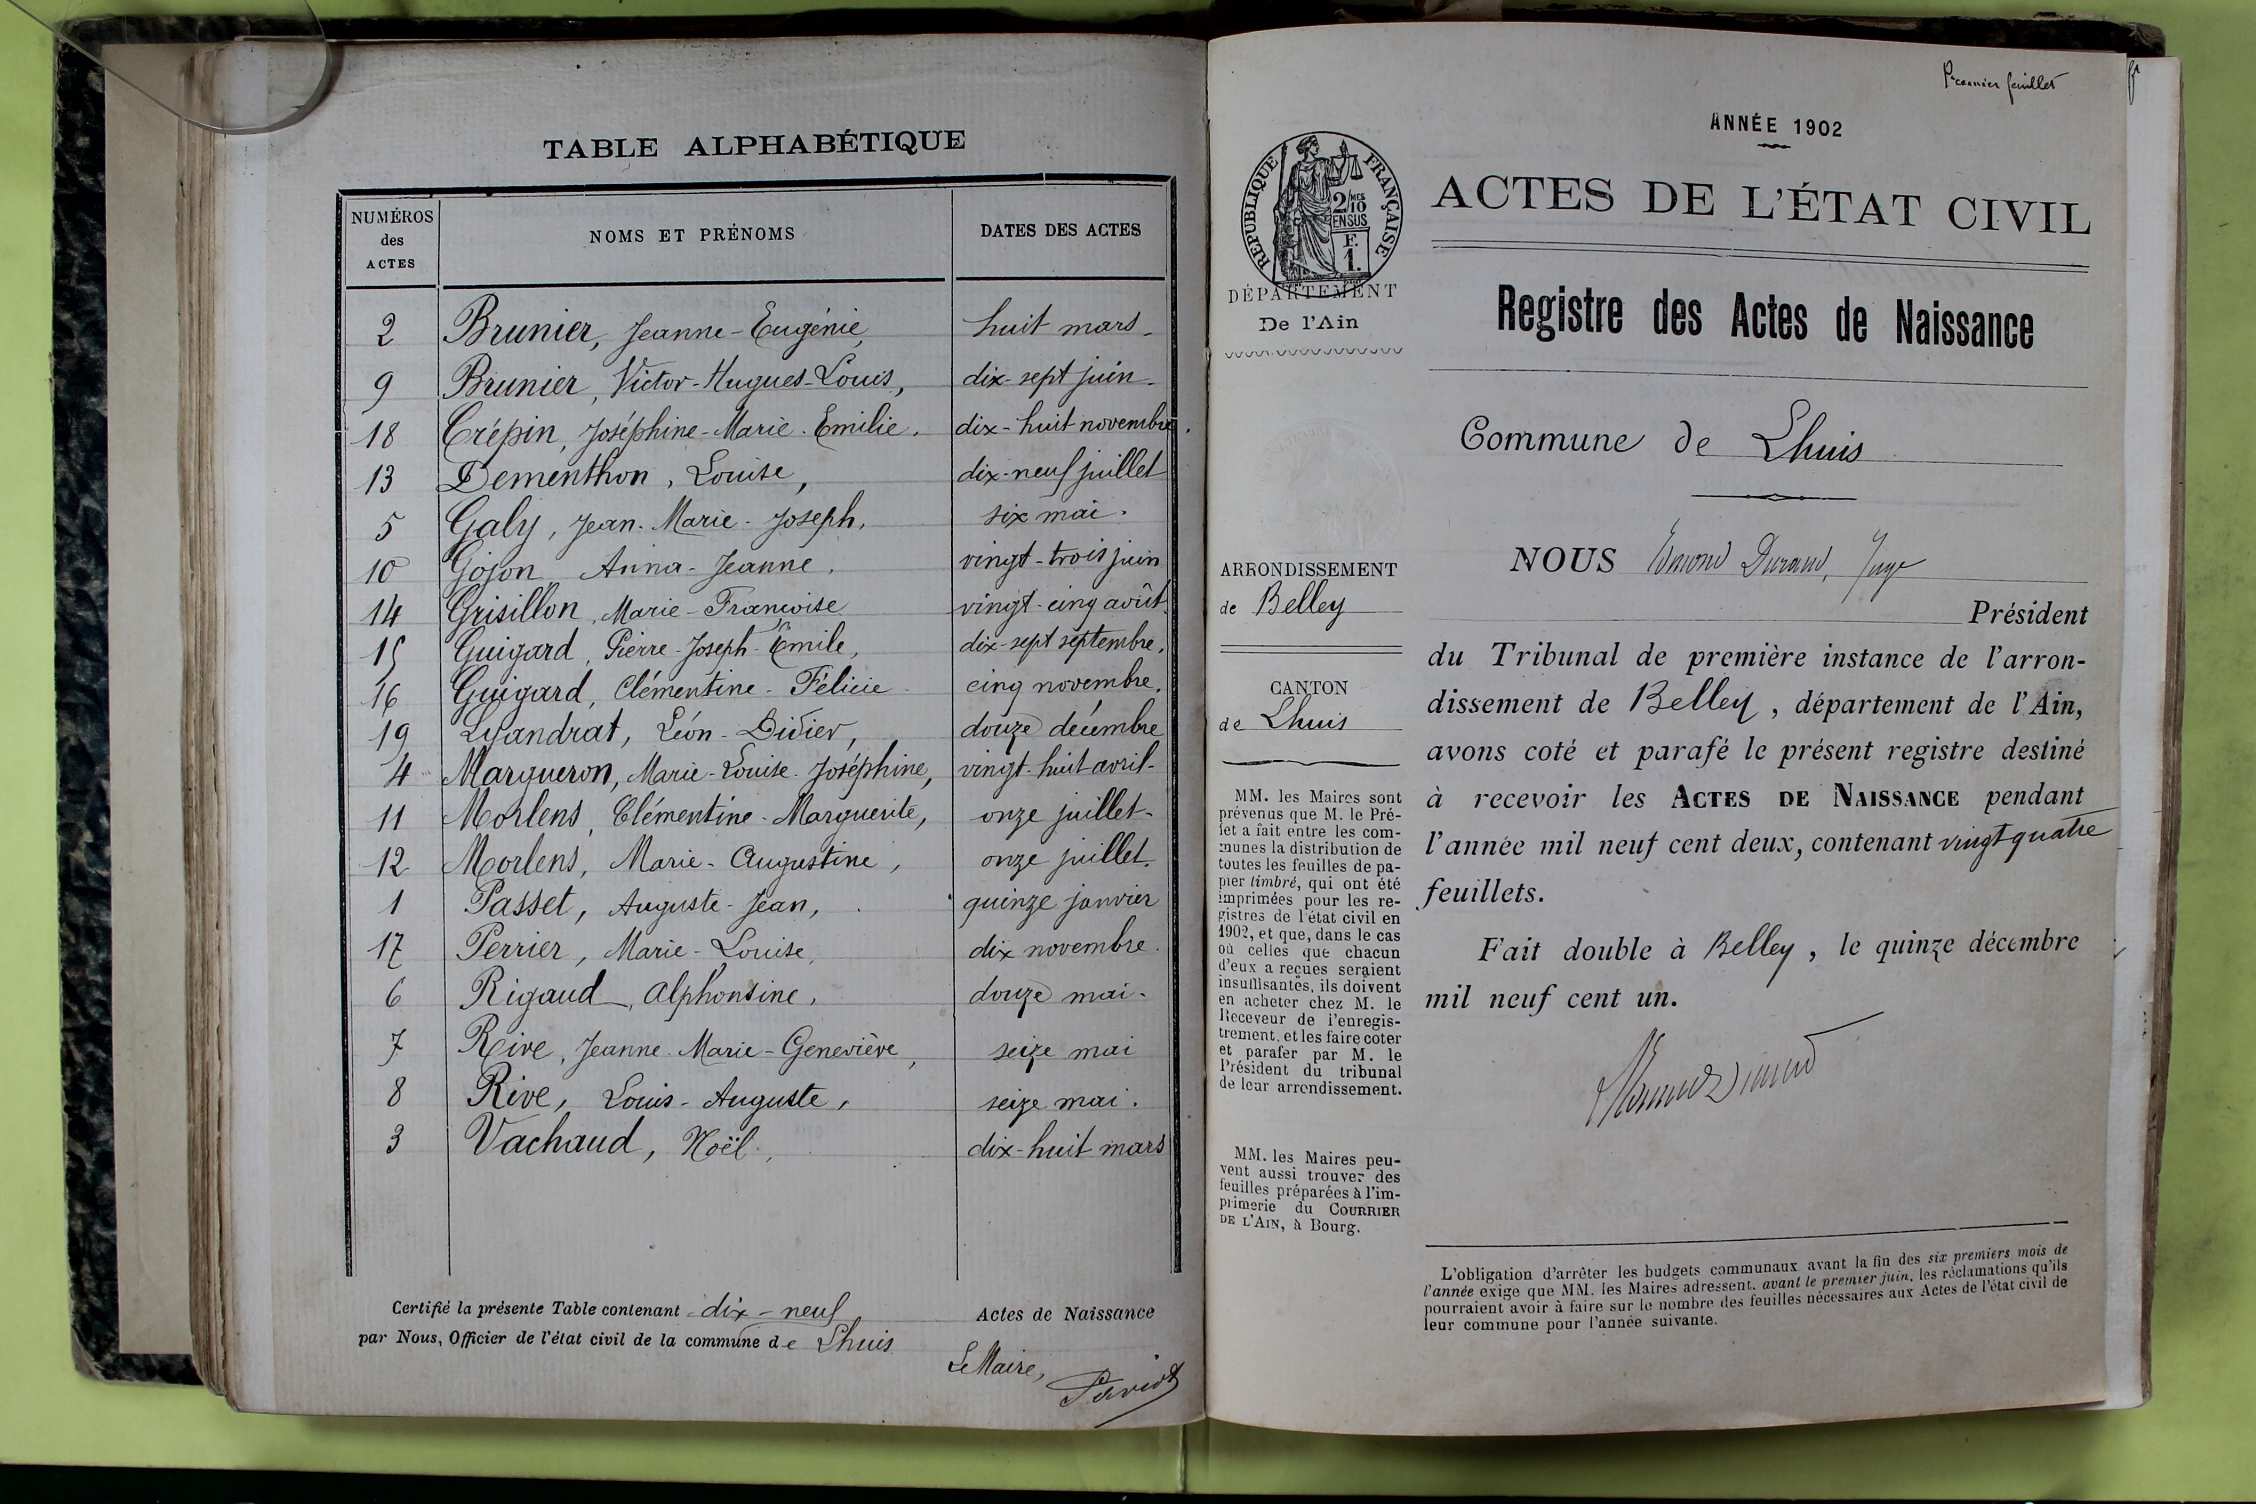 TABLE ALPHABÉTIQUE
NUMÉROS des ACTES
NOMS ET PRÉNOMS
DATES DES ACTES
2 Brunier, Jeanne-Eugénie, huit mars
9 Brunier, Victor-Hugues-Louis, dix-sept juin
18 Crépin, Joséphine-Marie-Emilie. dix-huit novembre.
13 Dementhon, Louise, dix-neuf juillet
5 Galy, Jean-Marie-Joseph, six mai.
10 Gojon Anna-Jeanne. vingt-trois juin
14 Grisillon, Marie-Françoise vingt-cinq août
15 Guigard, Pierre-Joseph-Emile, dix-sept septembre.
16 Guigard, Clémentine-Félicie cinq novembre.
19 Lyandrat, Léon-Didier, douze décembre
4 Margueron, Marie-Louise-Joséphine, vingt-huit avril
11 Morlens, Clémentine-Marguerite, onze juillet
12 Morlens, Marie-Augustine, onze juillet
1 Passet, Auguste-Jean, quinze janvier
17 Perrier, Marie-Louise, dix novembre.
6 Rigaud, Alphonsine, douze mai
7 Rive, Jeanne-Marie-Geneviève, seize mai
8 Rive, Louis-Auguste, seize mai.
3 Vachaud, Noël, dix-huit mars
Certifié la présente Table contenant dix-neuf Actes de Naissance
par Nous, Officier de l'état civil de la commune de Lhuis
Le Maire,
Premier feuillet
ANNÉE 1902
RÉPUBLIQUE FRANÇAISE
2/10 MES
EN SUS
F.
1.
DÉPARTEMENT
De l'Ain
ARRONDISSEMENT
de Belley
CANTON
de Lhuis
MM. les Maires sont
prévenus que M. le Pré-
fet a fait entre les com-
munes la distribution de
toutes les feuilles de pa-
pier timbré, qui ont été
imprimées pour les re-
gistres de l'état civil en
1902, et que, dans le cas
où celles que chacun
d'eux a reçues seraient
insuffisantes, ils doivent
en acheter chez M. le
Receveur de l'enregis-
trement, et les faire coter
et parafer par M. le
Président du tribunal
de leur arrondissement.
MM. les Maires peu-
vent aussi trouver des
feuilles préparées à l'im-
primerie du COURRIER
DE L'AIN, à Bourg.
ACTES DE L'ÉTAT CIVIL
Registre des Actes de Naissance
Commune de Lhuis
NOUS Edmond Durand, Juge
Président
du Tribunal de première instance de l'arron-
dissement de Belley, département de l'Ain,
avons coté et parafé le présent registre destiné
à recevoir les ACTES DE NAISSANCE pendant
l'année mil neuf cent deux, contenant vingt quatre
feuillets.
Fait double à Belley, le quinze décembre
mil neuf cent un.
L'obligation d'arrêter les budgets communaux avant la fin des six premiers mois de
l'année exige que MM. les Maires adressent, avant le premier juin, les réclamations qu'ils
pourraient avoir à faire sur le nombre des feuilles nécessaires aux Actes de l'état civil de
leur commune pour l'année suivante.